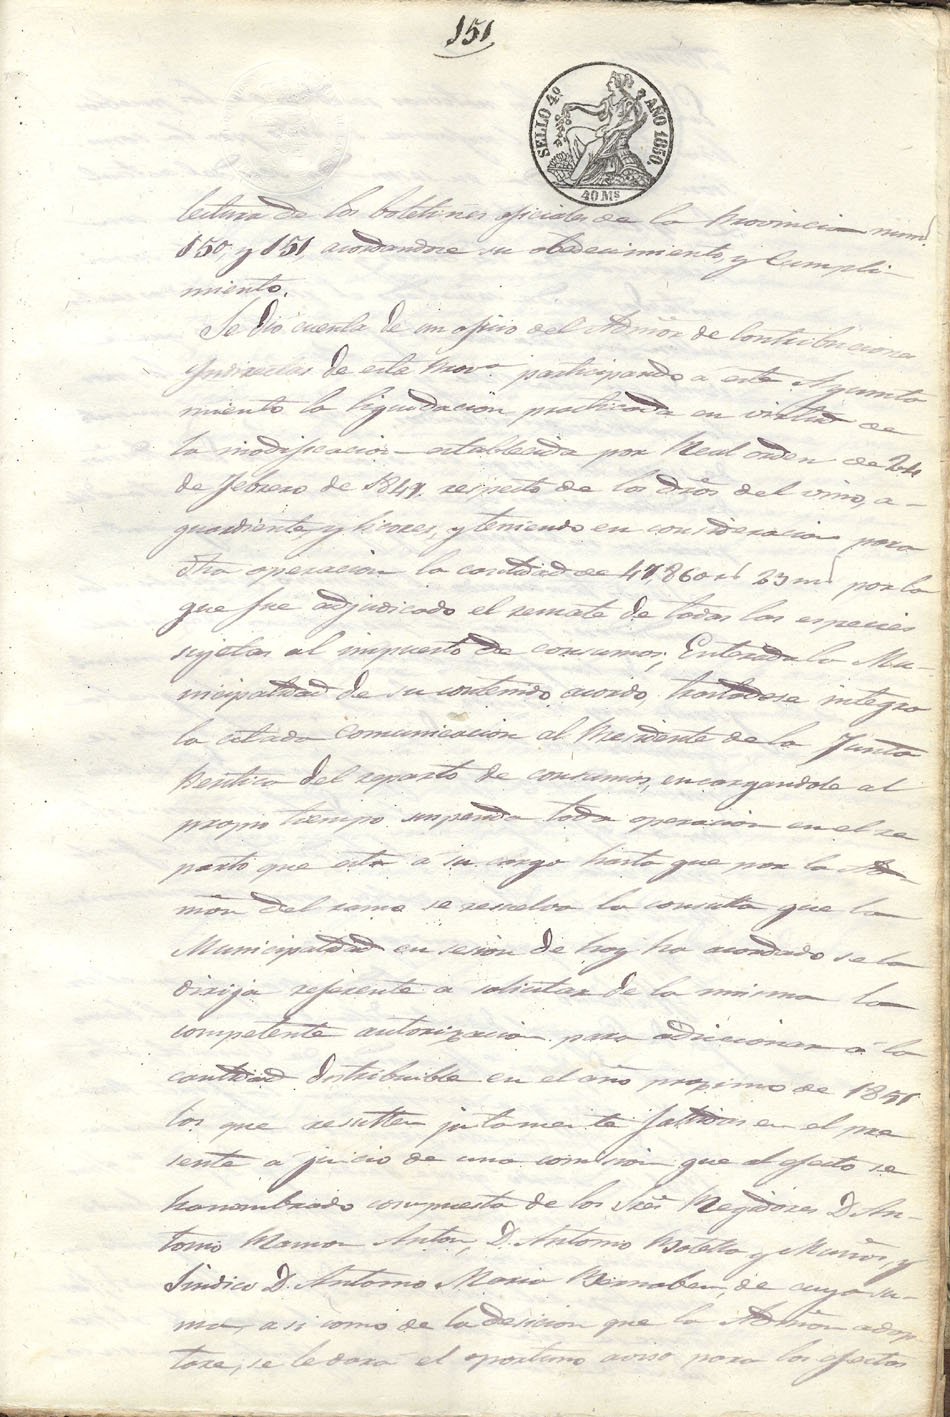 151
SELLO 4º AÑO 1850.
40 Ms
lectura de los boletines oficiales de la Provincia num.s
150, y 151 acordandose su obedecimiento, y cumpli-
miento.
Se dió cuenta de un oficio del Admor de Contribuciones
Yndirectas de esta Prova participando a este Ayunta
miento la liquidacion practicada en virtud de
la modificacion establecida por Real orden de 24
de Febrero de 184 respecto de los dros del vino, a-
guardiente, y licores, y teniendo en consideracion para
dha operacion la cantidad de 47,860 rs 23 ms por la
que fue adjudicado el remate de todas las especies
sujetas al impuesto de consumos; Enterada la Mu-
nicipalidad de su contenido acordó, trasladese integra
la citada comunicacion al Presidente de la Junta
Peritica del reparto de consumos, encargandole al
propio tiempo suspenda toda operacion en el re
parto que está á su cargo hasta que por la Ad-
mon del ramo se resuelva la consulta que la
Municipalidad en sesion de hoy ha acordado se la
dirija referente a solicitar de la misma la
competente autorizacion para adicionar á la
cantidad distribuible en el año proximo de 1851
las que resulten justamente fallidas en el pre
sente a juicio de una comision que al efecto se
ha nombrado compuesta de los Sres Regidores D. An-
tonio Ramon Anton, D. Antonio Botella y Muños, y
Sindico D. Antonio Maria Bernabeu, de cuya su-
ma, asi como de la desicion que la Admon adop
tare, se le dará el oportuno aviso para los efectos